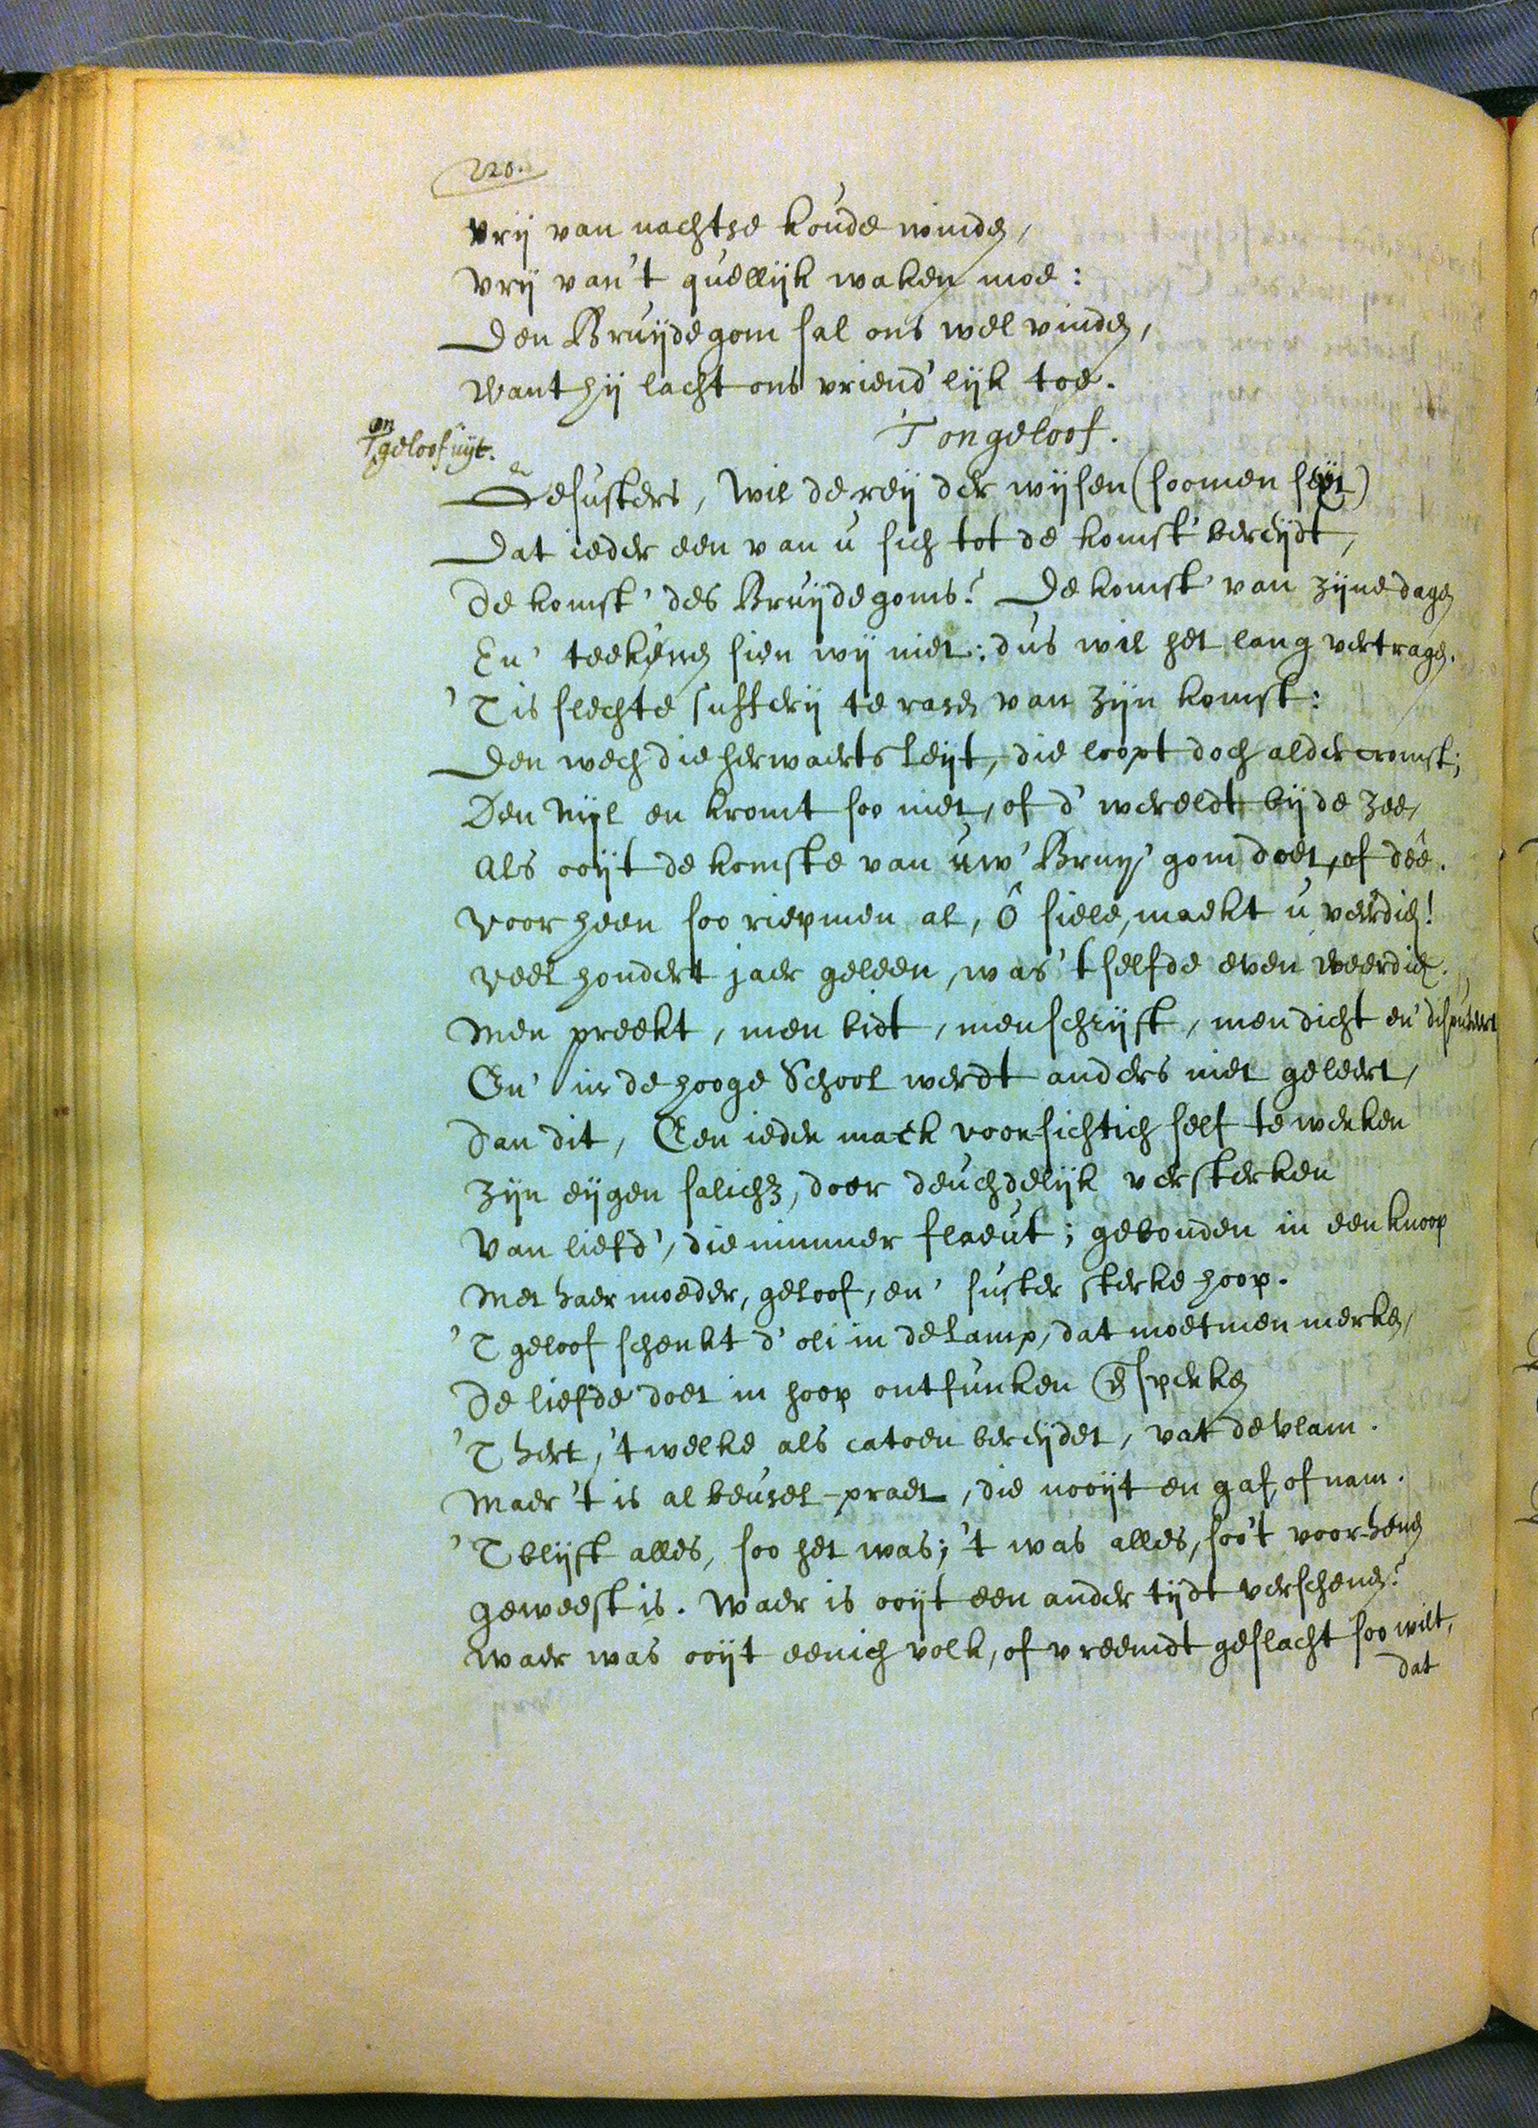 220.
Vrij van nachtse koude winden,
Vrij van't quellijk waken moe:
Den Bruijdegom sal ons wel vinden,
Want hij lacht ons vriend'lijk toe.
'T ongeloof.
'T ongeloof uijt.
Gesusters, wil de reij der wijsen (soomen seijt)
Dat ieder een van u sich tot de komst' bereijdt,
De komst' des Bruijdegoms? De komst' van zijne dagen
En' teekenen sien wij niet: dus wil het lang vertragen.
'T is slechte sufferij te rasen van zijn komst:
Den wech die herwaerts leijt, die loopt doch alder cromst;
Den Nijl en kromt soo niet, of d' wereldt bij de zee,
Als ooijt de komste van uw' Bruij'gom doet, of deê.
Voor heen soo riepmen al, ô siele, maekt u veerdich!
Veel hondert jaer geleen, was 't selfde even weerdich.
Men preekt, men bidt, men schrijft, men dicht en' disputeert
En' in de hooge School werdt anders niet geleert,
Dan dit, Een ieder maek voorsichtich self te werken
Zijn eijgen salich, door deuchdelijk versterken
Van liefd', die nimmer flaeut; gebonden in een knoop
Met haer moeder, geloof, en' suster sterke hoop.
'T geloof schenkt d' oli in de lamp, dat moetmen merken,
De liefde doet in hoop ontfunken en sperken
'T hert, 't welke als catoen bereijdet, vat de vlam.
Maer 't is al beusel-praet, die nooijt en gaf, of nam.
'T blijft alles, soo het was; 't was alles, soo't voor-henen
geweest is. Waer is ooijt een ander tijdt verschenen?
Waer was ooijt eenich volk, of vreemdt geslacht soo wilt,
dat